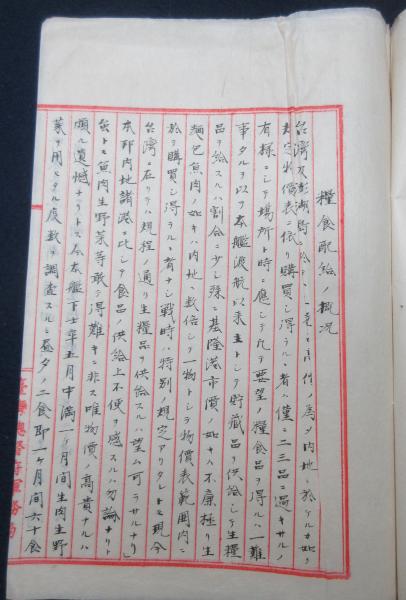 糧食配給ノ概況
台湾及澎湖島ニ於テハ土地ノ情况ノ為メ内地ニ於ケルカ如ク
規定物價表ニ依リ購買シ得ラルヽ者ハ僅ニ二三品ニ過キサルノ
有様ニシテ場所ト時ニ應シテ凡テ要望ノ糧食品ヲ得ルハ一難
事タルヲ以テ本艦渡航以来主トシテ貯蔵品ヲ供給シテ生糧
品ヲ給スルハ割合ニ少シ殊ニ基隆港市價ノ如キハ不廉極リ生
麺包魚肉ノ如キハ内地ニ数倍シテ一物トシテ物價表範囲内ニ
於テ購買シ得ラルヽ者ナシ戦時ハ特別ノ規定アリタルモ現今
台湾ニ在リテハ規程ノ通リ生糧品ヲ供給スルハ望ム可ラサルナリ
本邦内地諸港ニ比シテ食品ノ供給上不便ヲ感スルハ勿論ナリト
雖トモ魚肉生野菜等敢テ得難キニ非ス唯物價ノ高貴ナルハ
頗ル遺憾ナリトス今本艦下士卒五月中満一ヶ月間生肉生野
菜ヲ用ヒタル度数ヲ調査スルニ昼夕ノ二食即一ヶ月間六十食
臺灣總督府軍務局